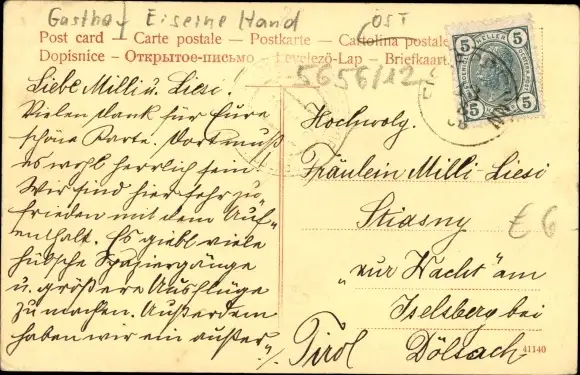 Gasthof Eiserne Hand
OST
Post card — Carte postale — Postkarte — Cartolina postale
Dopisnice — Открытое-письмо — Levelező-Lap — Briefkaart.
5656/12
5 HELLER 5
5 5
Liebe Milli u. Liesi!
Vielen Dank für Eure
schöne Karte. Dort muß
es wohl herrlich sein!
Wir sind hier sehr zu-
frieden mit dem Auf-
enthalt. Es giebt viele
hübsche Spaziergänge
u. größere Ausflüge
zu machen. Außerdem
haben wir ein außer-
Hochwolg.
Fräulein Milli-Liesi
Stiasny
"zur Wacht" am
Iselsberg bei
Tirol Dölsach
£6
41140